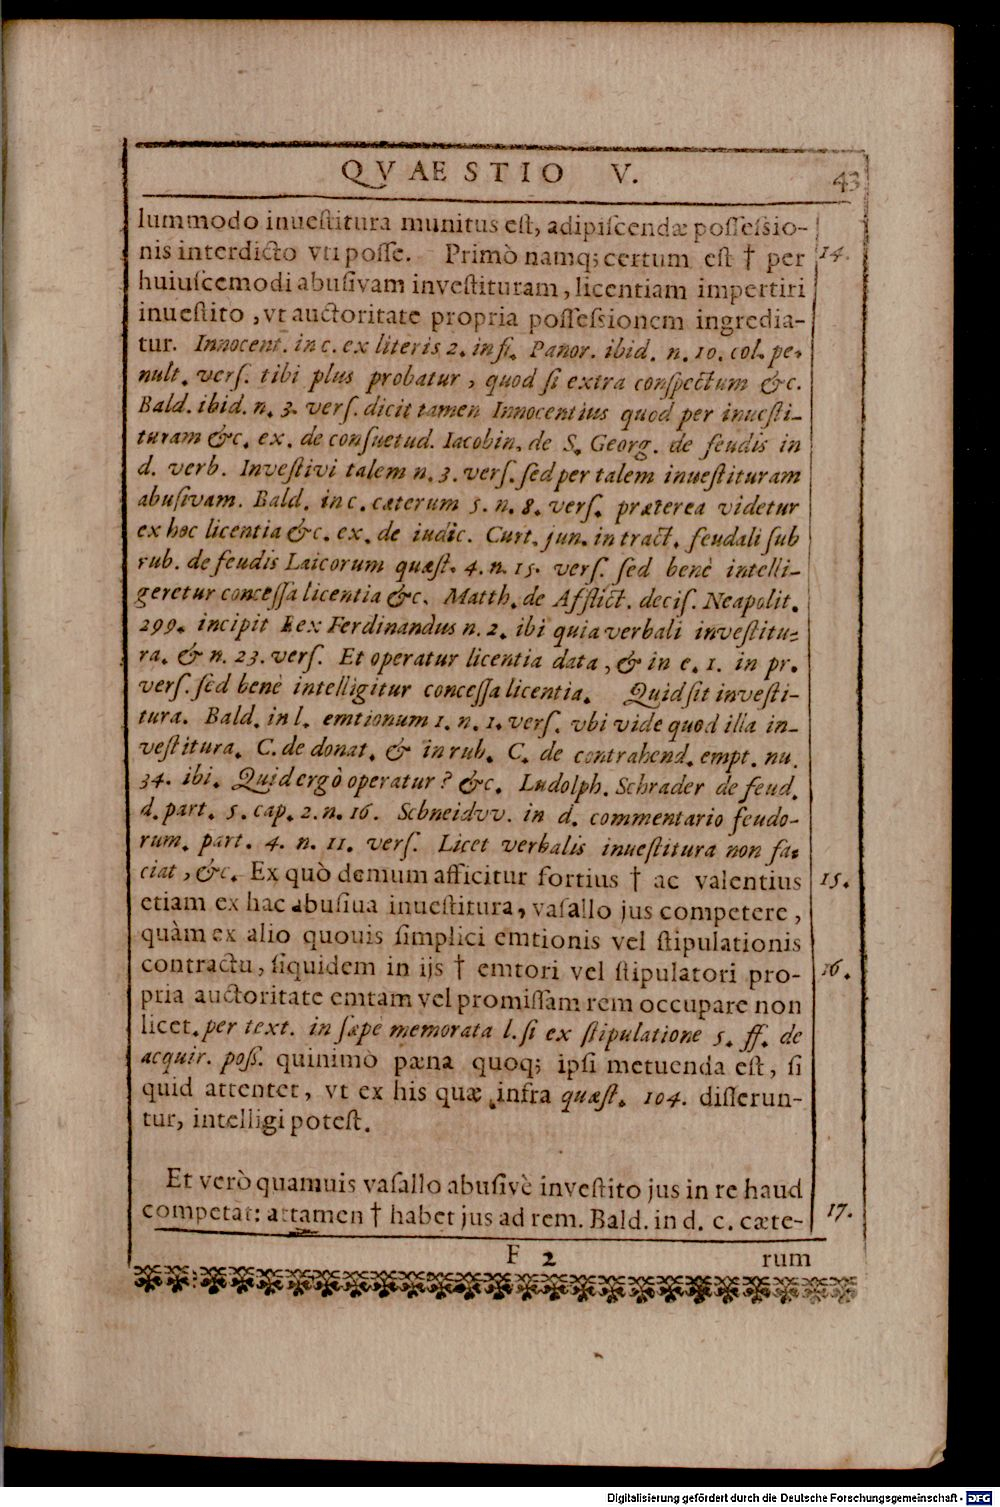 QVAESTIO V. 43
lummodo inuestitura munitus est, adipiscendæ possessio-
nis interdicto vti posse. Primò namq; certum est † per 14.
huiuscemodi abusivam investituram, licentiam impertiri
inuestito, vt auctoritate propria possessionem ingredia-
tur. Innocent. in c. ex literis 2. in fi. Panor. ibid. n. 10. col. pe-
nult. vers. tibi plus probatur, quod si extra conspectum &c.
Bald. ibid. n. 3. vers. dicit tamen Innocentius quod per inuesti-
turam &c. ex. de consuetud. Iacobin. de S. Georg. de feudis in
d. verb. Investivi talem n. 3. vers. sed per talem inuestituram
abusivam. Bald. in c. cæterum 5. n. 8. vers. præterea videtur
ex hoc licentia &c. ex. de iudic. Curt. jun. in tract. feudali sub
rub. de feudis Laicorum quæst. 4. n. 15. vers. sed benè intelli-
geretur concessa licentia &c. Matth. de Afflict. decis. Neapolit.
299. incipit Rex Ferdinandus n. 2. ibi quia verbali investitu-
ra. & n. 23. vers. Et operatur licentia data, & in e. 1. in pr.
vers. sed benè intelligitur concessa licentia. Quid sit investi-
tura. Bald. in l. emtionum 1. n. 1. vers. vbi vide quod illa in-
vestitura. C. de donat. & in rub. C. de contrahend. empt. nu.
34. ibi. Quid ergò operatur? &c. Ludolph. Schrader de feud.
d. part. 5. cap. 2. n. 16. Schneidvv. in d. commentario feudo-
rum. part. 4. n. 11. vers. Licet verbalis inuestitura non fa-
ciat, &c. Ex quò demum afficitur fortius † ac valentius 15.
etiam ex hac abusiua inuestitura, vasallo jus competere,
quàm ex alio quouis simplici emtionis vel stipulationis
contractu, siquidem in ijs † emtori vel stipulatori pro- 16.
pria auctoritate emtam vel promissam rem occupare non
licet. per text. in sæpe memorata l. si ex stipulatione 5. ff. de
acquir. poss. quinimò pæna quoq; ipsi metuenda est, si
quid attentet, vt ex his quæ infra quæst. 104. disserun-
tur, intelligi potest.
Et verò quamuis vasallo abusivè investito jus in re haud
competat: attamen † habet jus ad rem. Bald. in d. c. cæte- 17.
F 2 rum
Digitalisierung gefördert durch die Deutsche Forschungsgemeinschaft - DFG